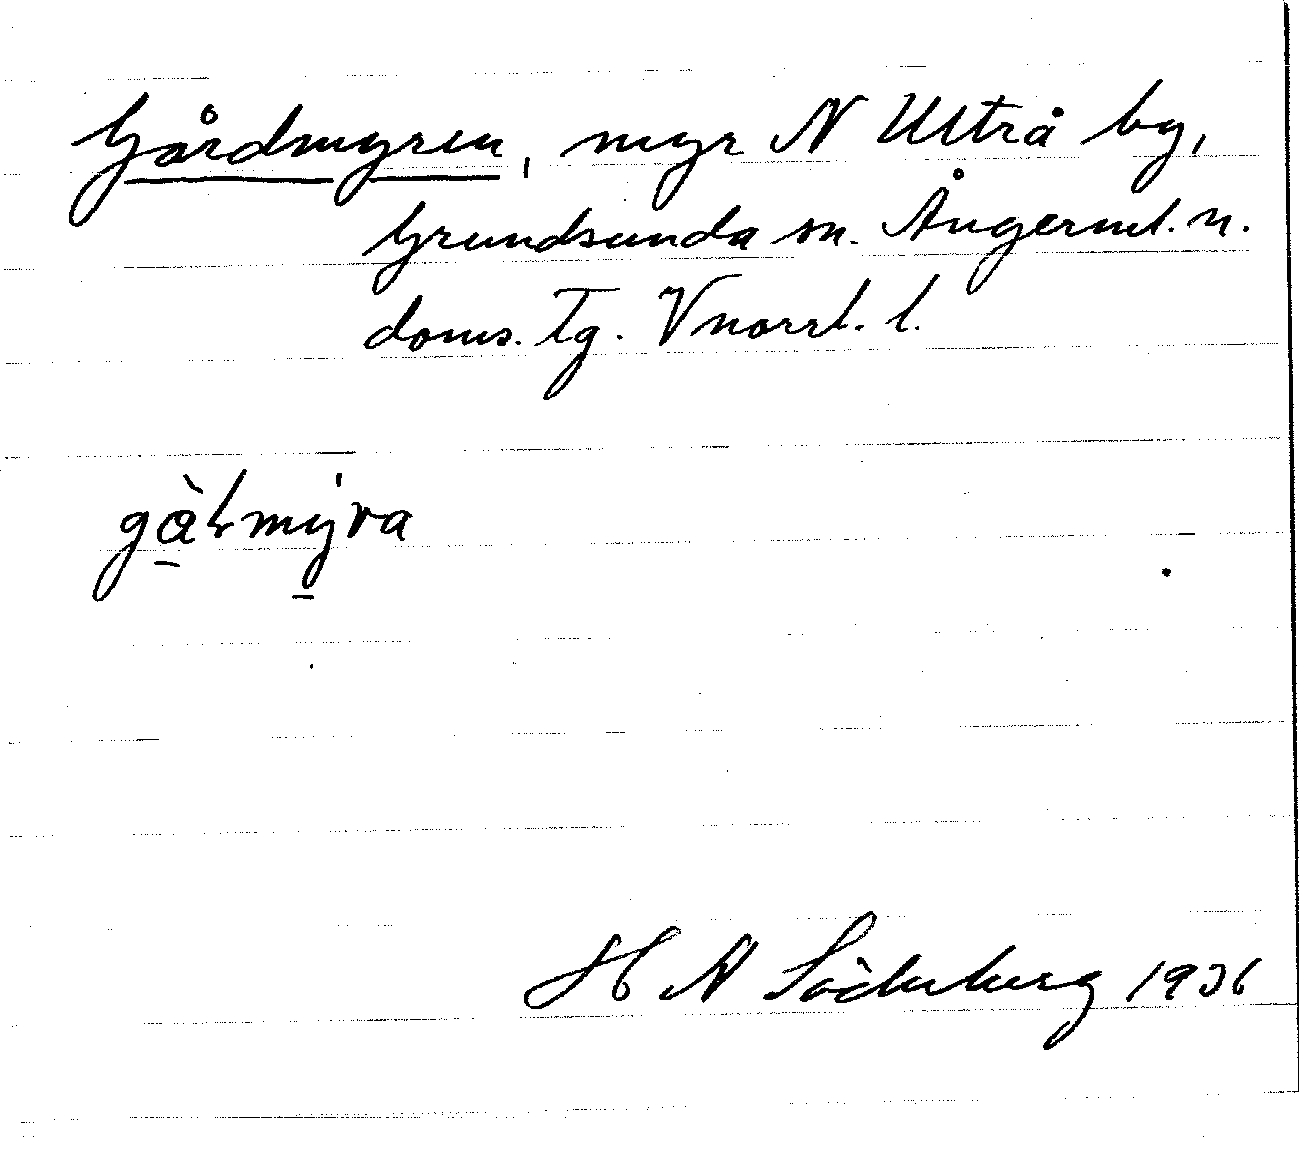 Gårdmyren, myr N Utträ by,
Grundsunda sn. Ångerml. n.
doms. Tg. Vnorrl. l.
H N Söderberg 1936